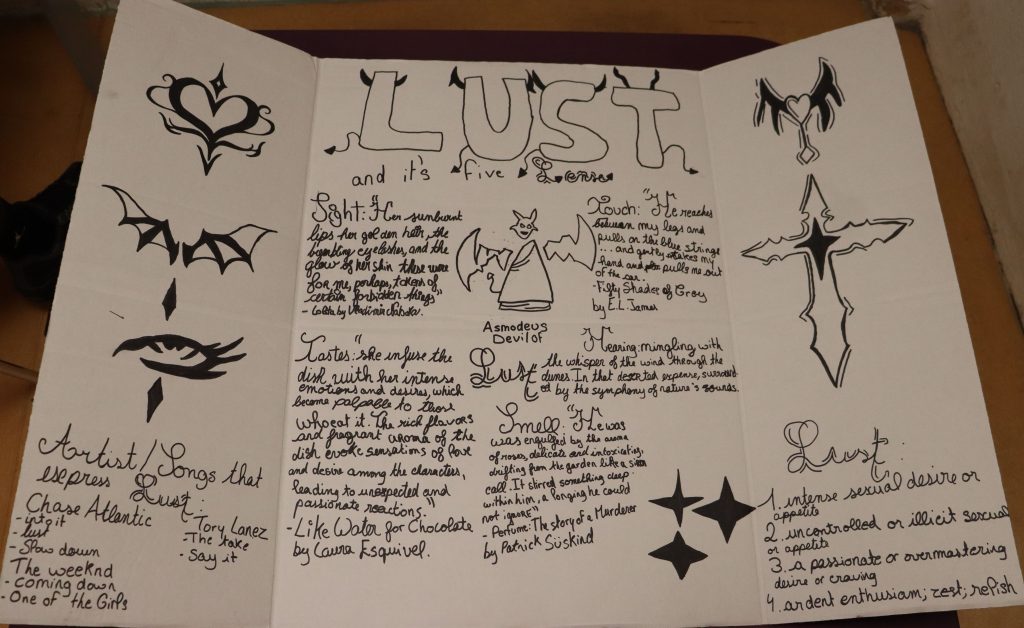 LUST
and it's five Sense
Sight: "Her sunburnt
lips her golden hair, the
eyelashes, and the
glow of her skin these were
for me, perhaps, tokens of
certain forbidden things"
- Lolita by Vladimir
Touch: "He reaches
between my legs and
pulls on the blue string
... and gently takes my
hand and pulls me out
of the car.
- Fifty Shades of Grey
by E.L. James
Asmodeus
Devil of
Lust
Tastes: "she infuse the
dish with her intense
emotions and desires, which
become palpable to those
who eat it. The rich flavors
and fragrant aroma of the
dish evoke sensations of love
and desire among the characters,
leading to unexpected and
passionate reactions."
- Like Water for Chocolate
by Laura Esquivel.
Hearing: mingling with
the whisper of the wind through the
dunes. In that deserted expense, surround
ed by the symphony of nature's sounds.
Smell: "He was
was engulfed by the aroma
of roses, delicate and intoxicating,
drifting from the garden like a
call. It stirred something deep
within him, a longing he could
not ignore"
- Perfume: The story of a Murderer
by Patrick Süskind
Artist/Songs that
express Lust:
Chase Atlantic
- into it
- lust
- Slow down
The weeknd
- coming down
- One of the Girls
- Tory Lanez
- The take
- Say it
Lust:
1. intense sexual desire or
appetite
2. uncontrolled or illicit sexual
or appetite
3. a passionate or overmastering
desire or craving
4. ardent enthusiam; zest; relish